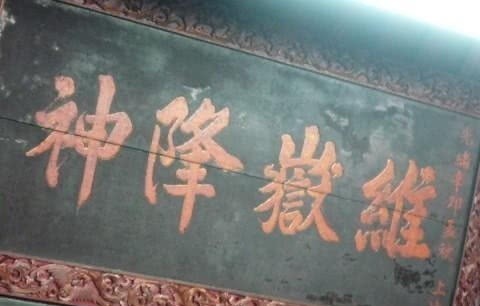 光緒辛卯孟秋 上
維嶽降神